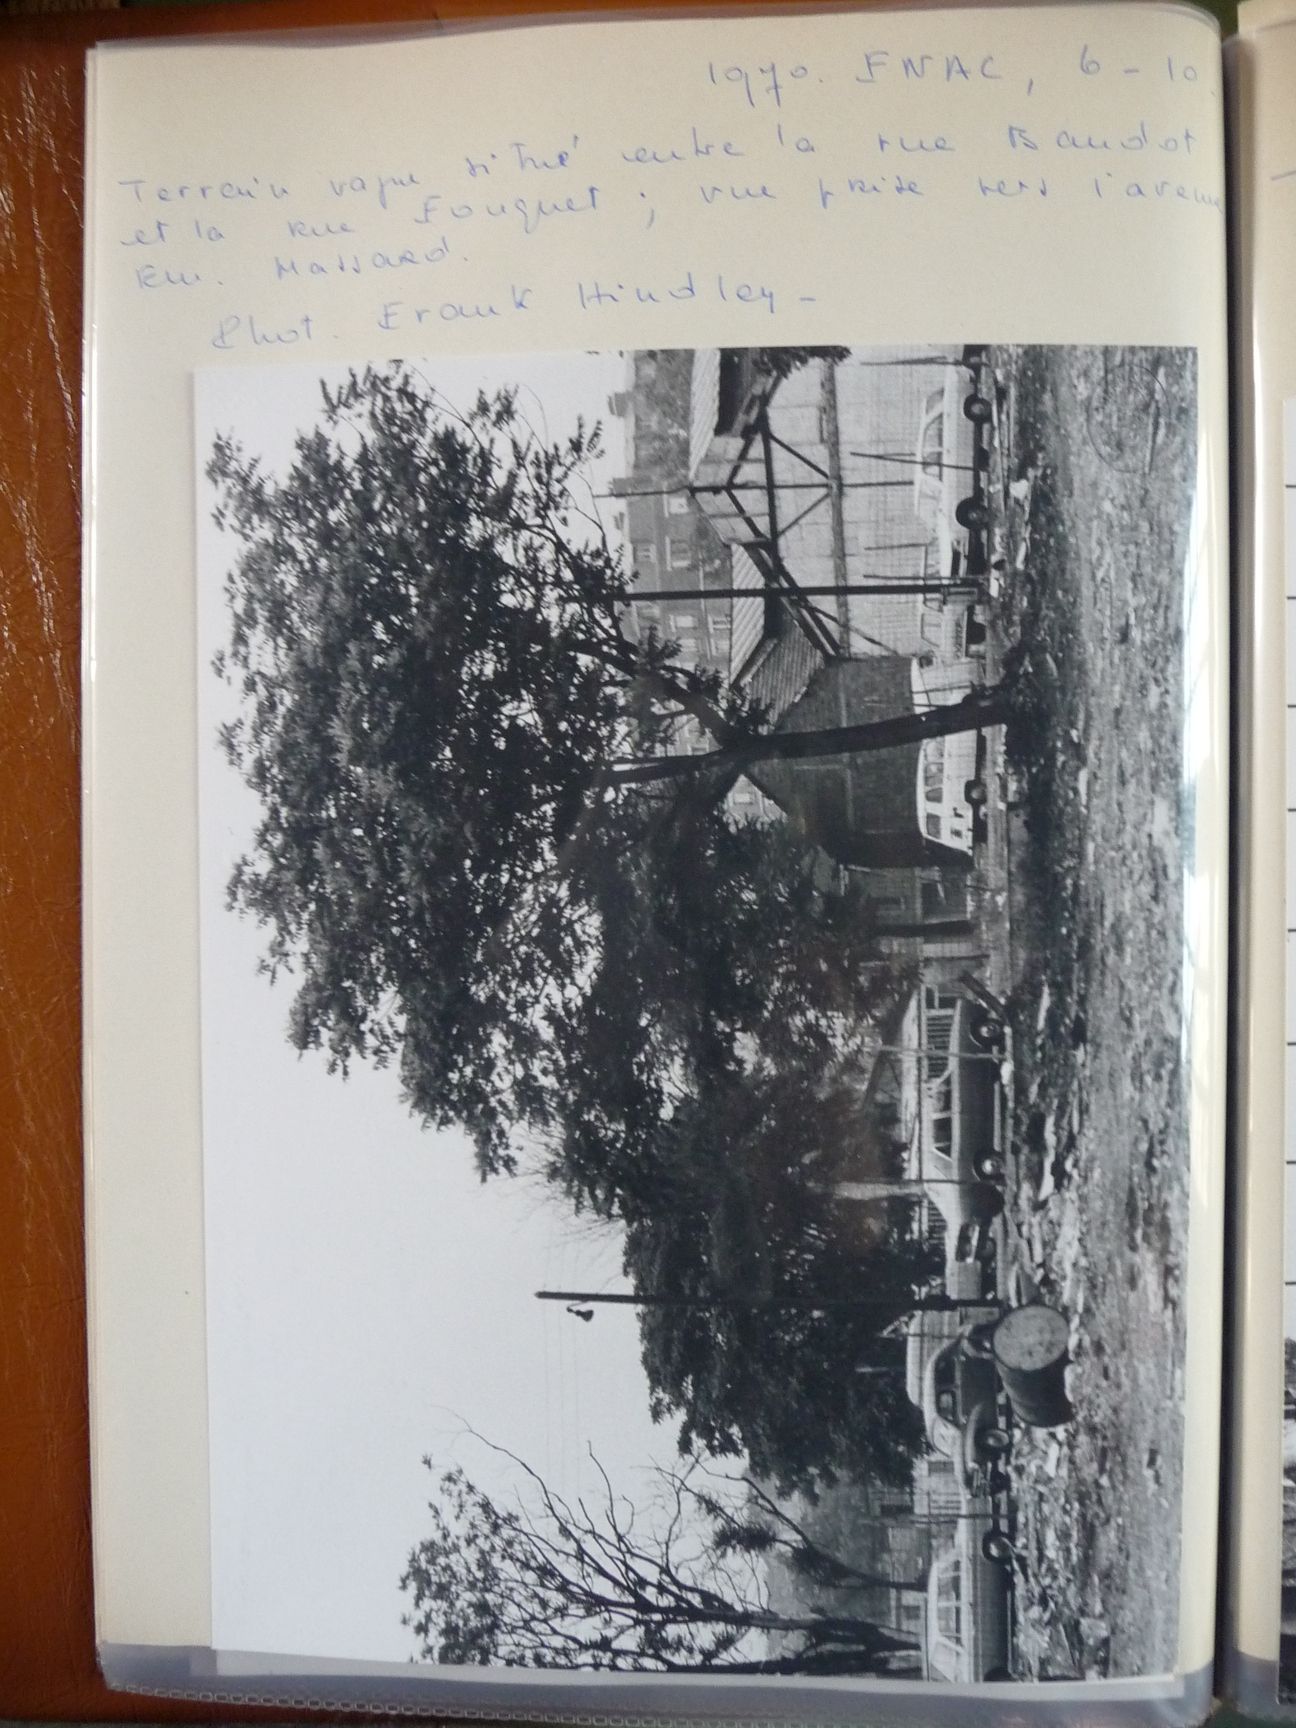 1970. FNAC, 6-10.
Terrain vague situé entre la rue Baudot
et la rue Fouquet ; vue prise vers l'avenue
Em. Massard.
Phot. Frank Hindley -